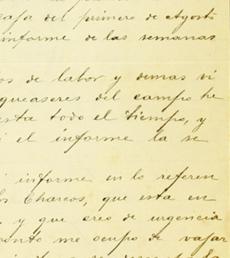 casa del primero de Agosti
informe de las semanas
os de labor y demas vi
queaseres del campo he
esta todo el tiempo, y
i el informe la se
i informe en lo referen
Charcos, que esta en
y que creo de urgencia
me ocupo de vajar